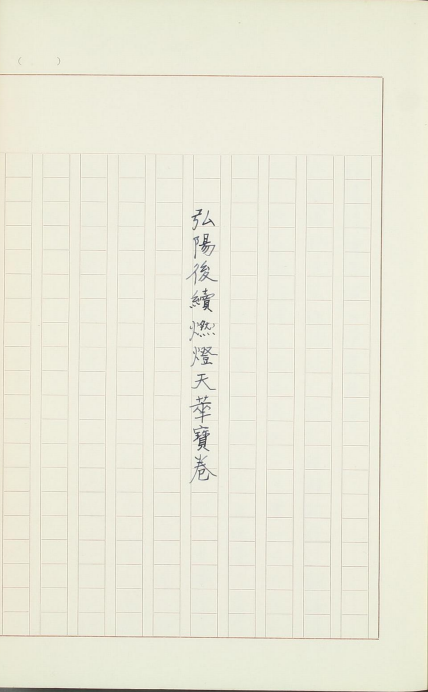 弘陽後續燃燈天華寶卷